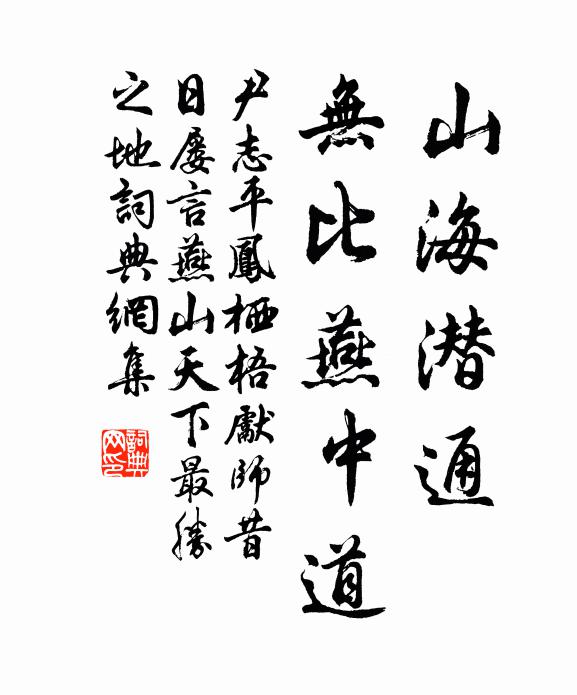 山海潜通
無比燕中道
尹志平鳳栖梧獻師昔
日屡言燕山天下最勝
之地詞典網集
詞典
网印